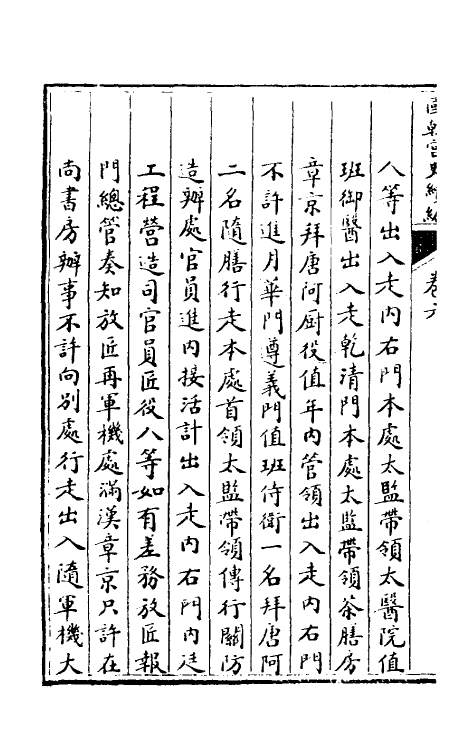 人等出入走内右門本處太監帶領太醫院值
班御醫出入走乾清門本處太監帶領茶膳房
章京拜唐阿厨役值年内管領出入走内右門
不許進月華門遵義門值班侍衛一名拜唐阿
二名隨膳行走本處首領太監帶領傳行關防
造辦處官員進内接活計出入走内右門内廷
工程營造司官員匠役人等如有差務放匠報
門總管奏知放匠再軍機處滿漢章京只許在
尚書房辦事不許向别處行走出入隨軍機大
卷六